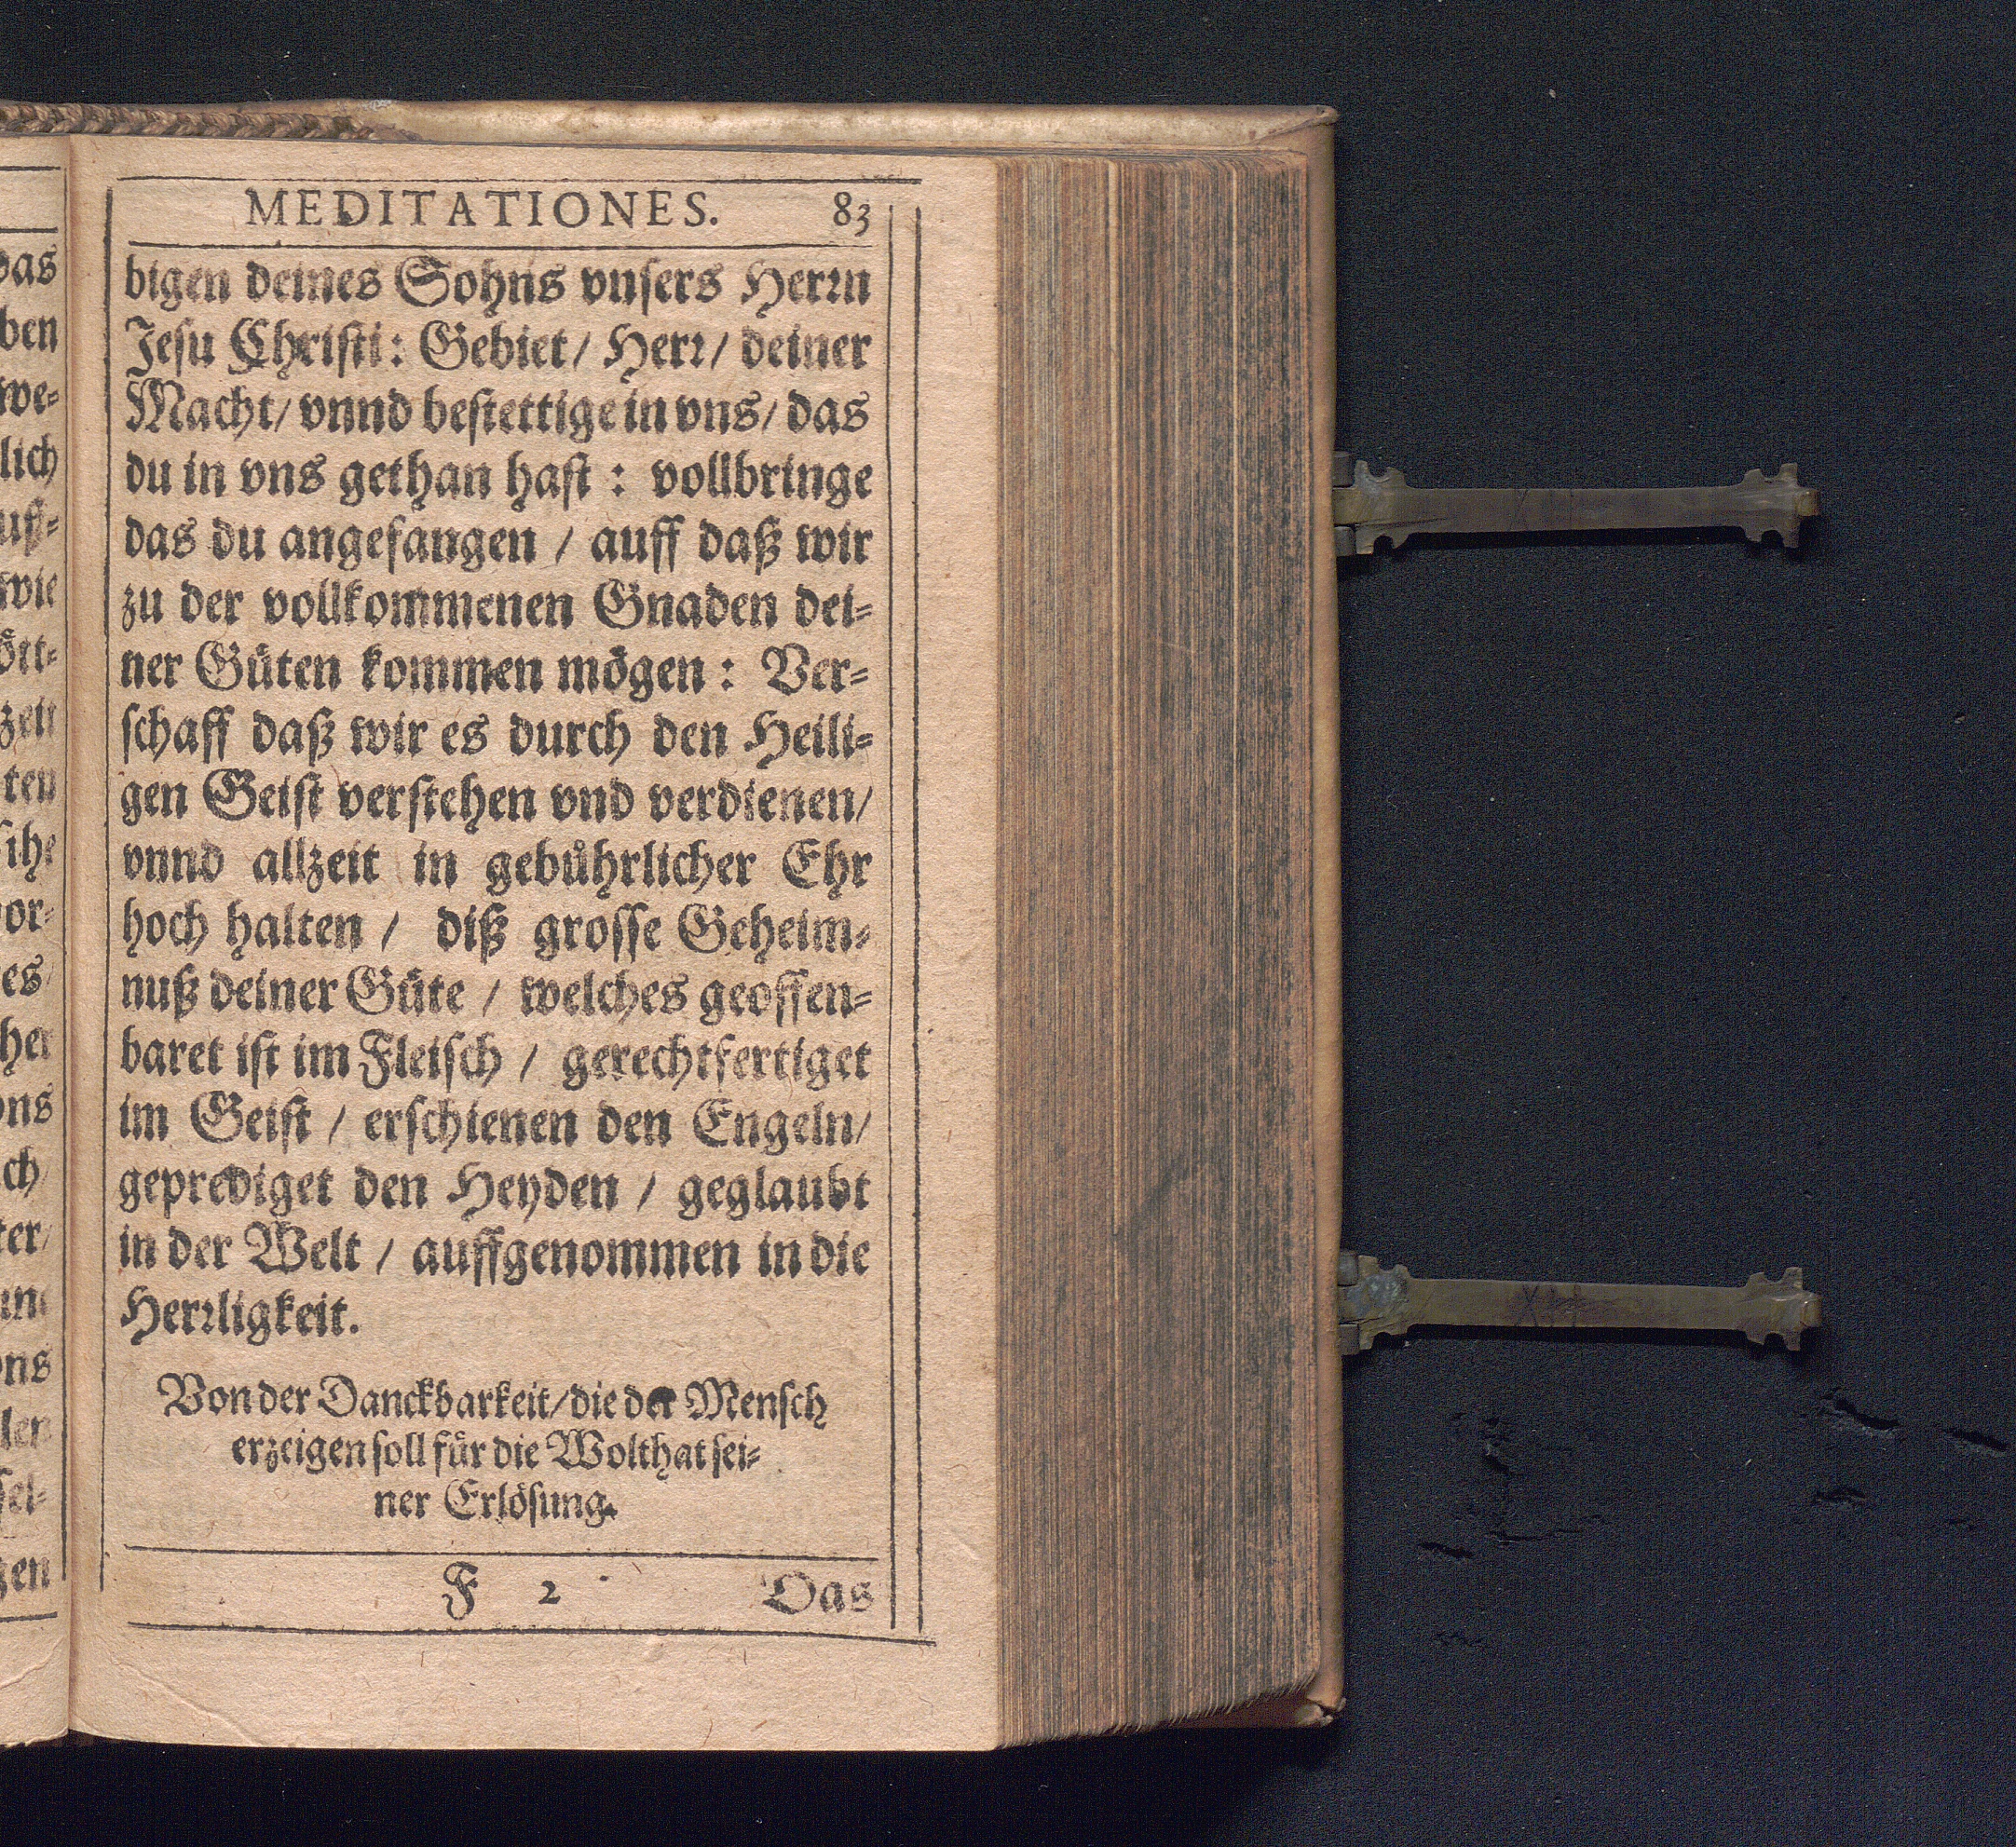 MEDITATIONES. 83
bigen deines Sohns vnsers Herꝛn
Jesu Christi: Gebiet/ Herꝛ/ deiner
Macht/ vnnd bestettige in vns/ das
du in vns gethan hast : vollbringe
das du angefangen / auff daß wir
zu der vollkommenen Gnaden dei-
ner Gůten kommen mögen : Ver-
schaff daß wir es durch den Heili-
gen Geist verstehen vnd verdienen/
vnnd allzeit in gebůhrlicher Ehr
hoch halten / diß grosse Geheim-
nuß deiner Gůte / welches geoffen-
baret ist im Fleisch / gerechtfertiget
im Geist / erschienen den Engeln/
geprediget den Heyden / geglaubt
in der Welt / auffgenommen in die
Herꝛligkeit.
Von der Danckbarkeit/die der Mensch
erzeigen soll fůr die Wolthat sei-
ner Erlösung.
F 2 Das